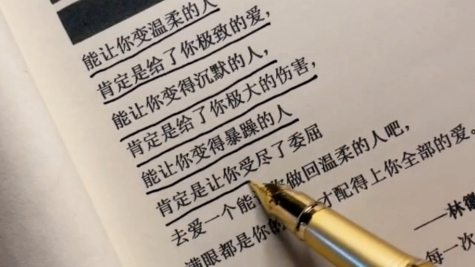 能让你变温柔的人
肯定是给了你极致的爱,
能让你变得沉默的人,
肯定是给了你极大的伤害,
能让你变得暴躁的人
肯定是让你受尽了委屈
去爱一个能 你做回温柔的人吧,
满眼都是你的 才配得上你全部的爱。
——林徽
每一次